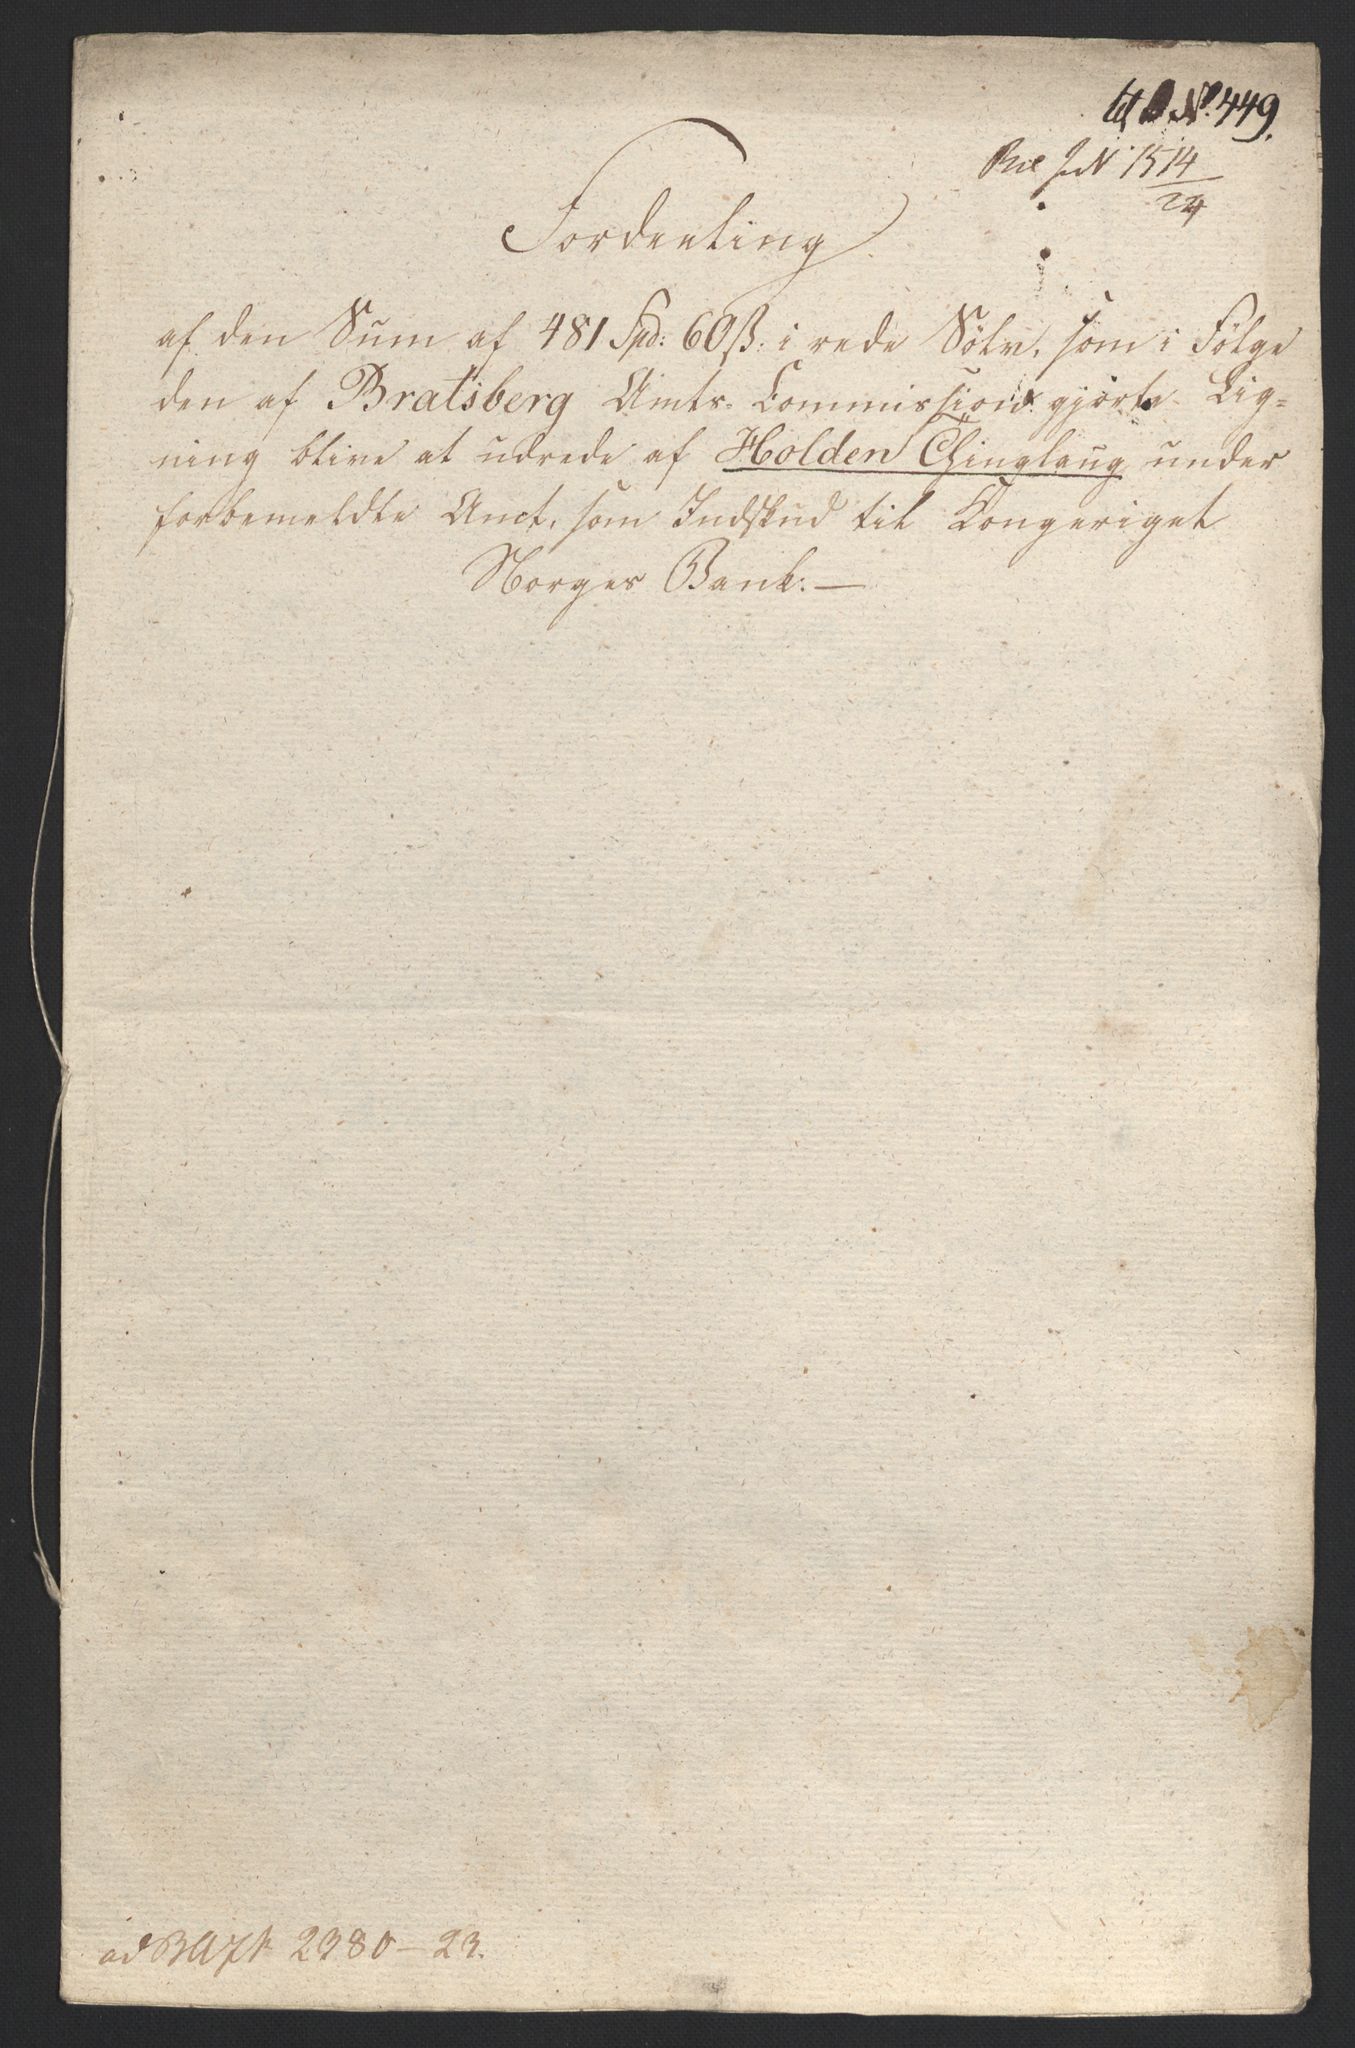 No. 449.
J. N 1514
24
Fordeeling
af den Sum af 481 Spd: 60 ß: i rede Sölv, som i Fölge
den af Bratsberg Amts Commission gjorte Lig=
ning blive at udrede af Holden Thinglaug under
forbemeldte Amt, som Indskud til Kongeriget
Norges Bank. —
ad 2380 - 23.